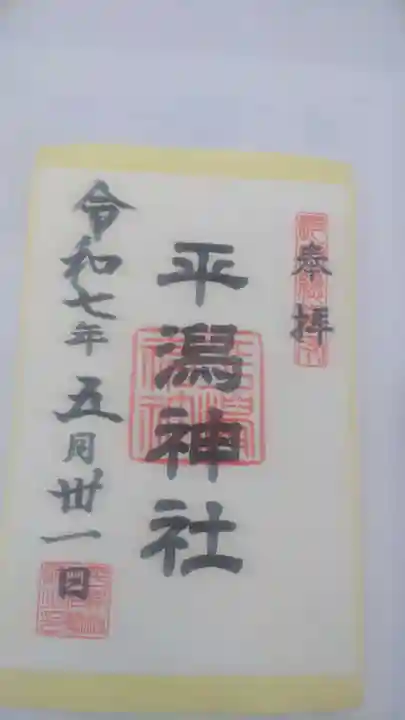 奉拝
平潟神社
令和七年五月卅一日